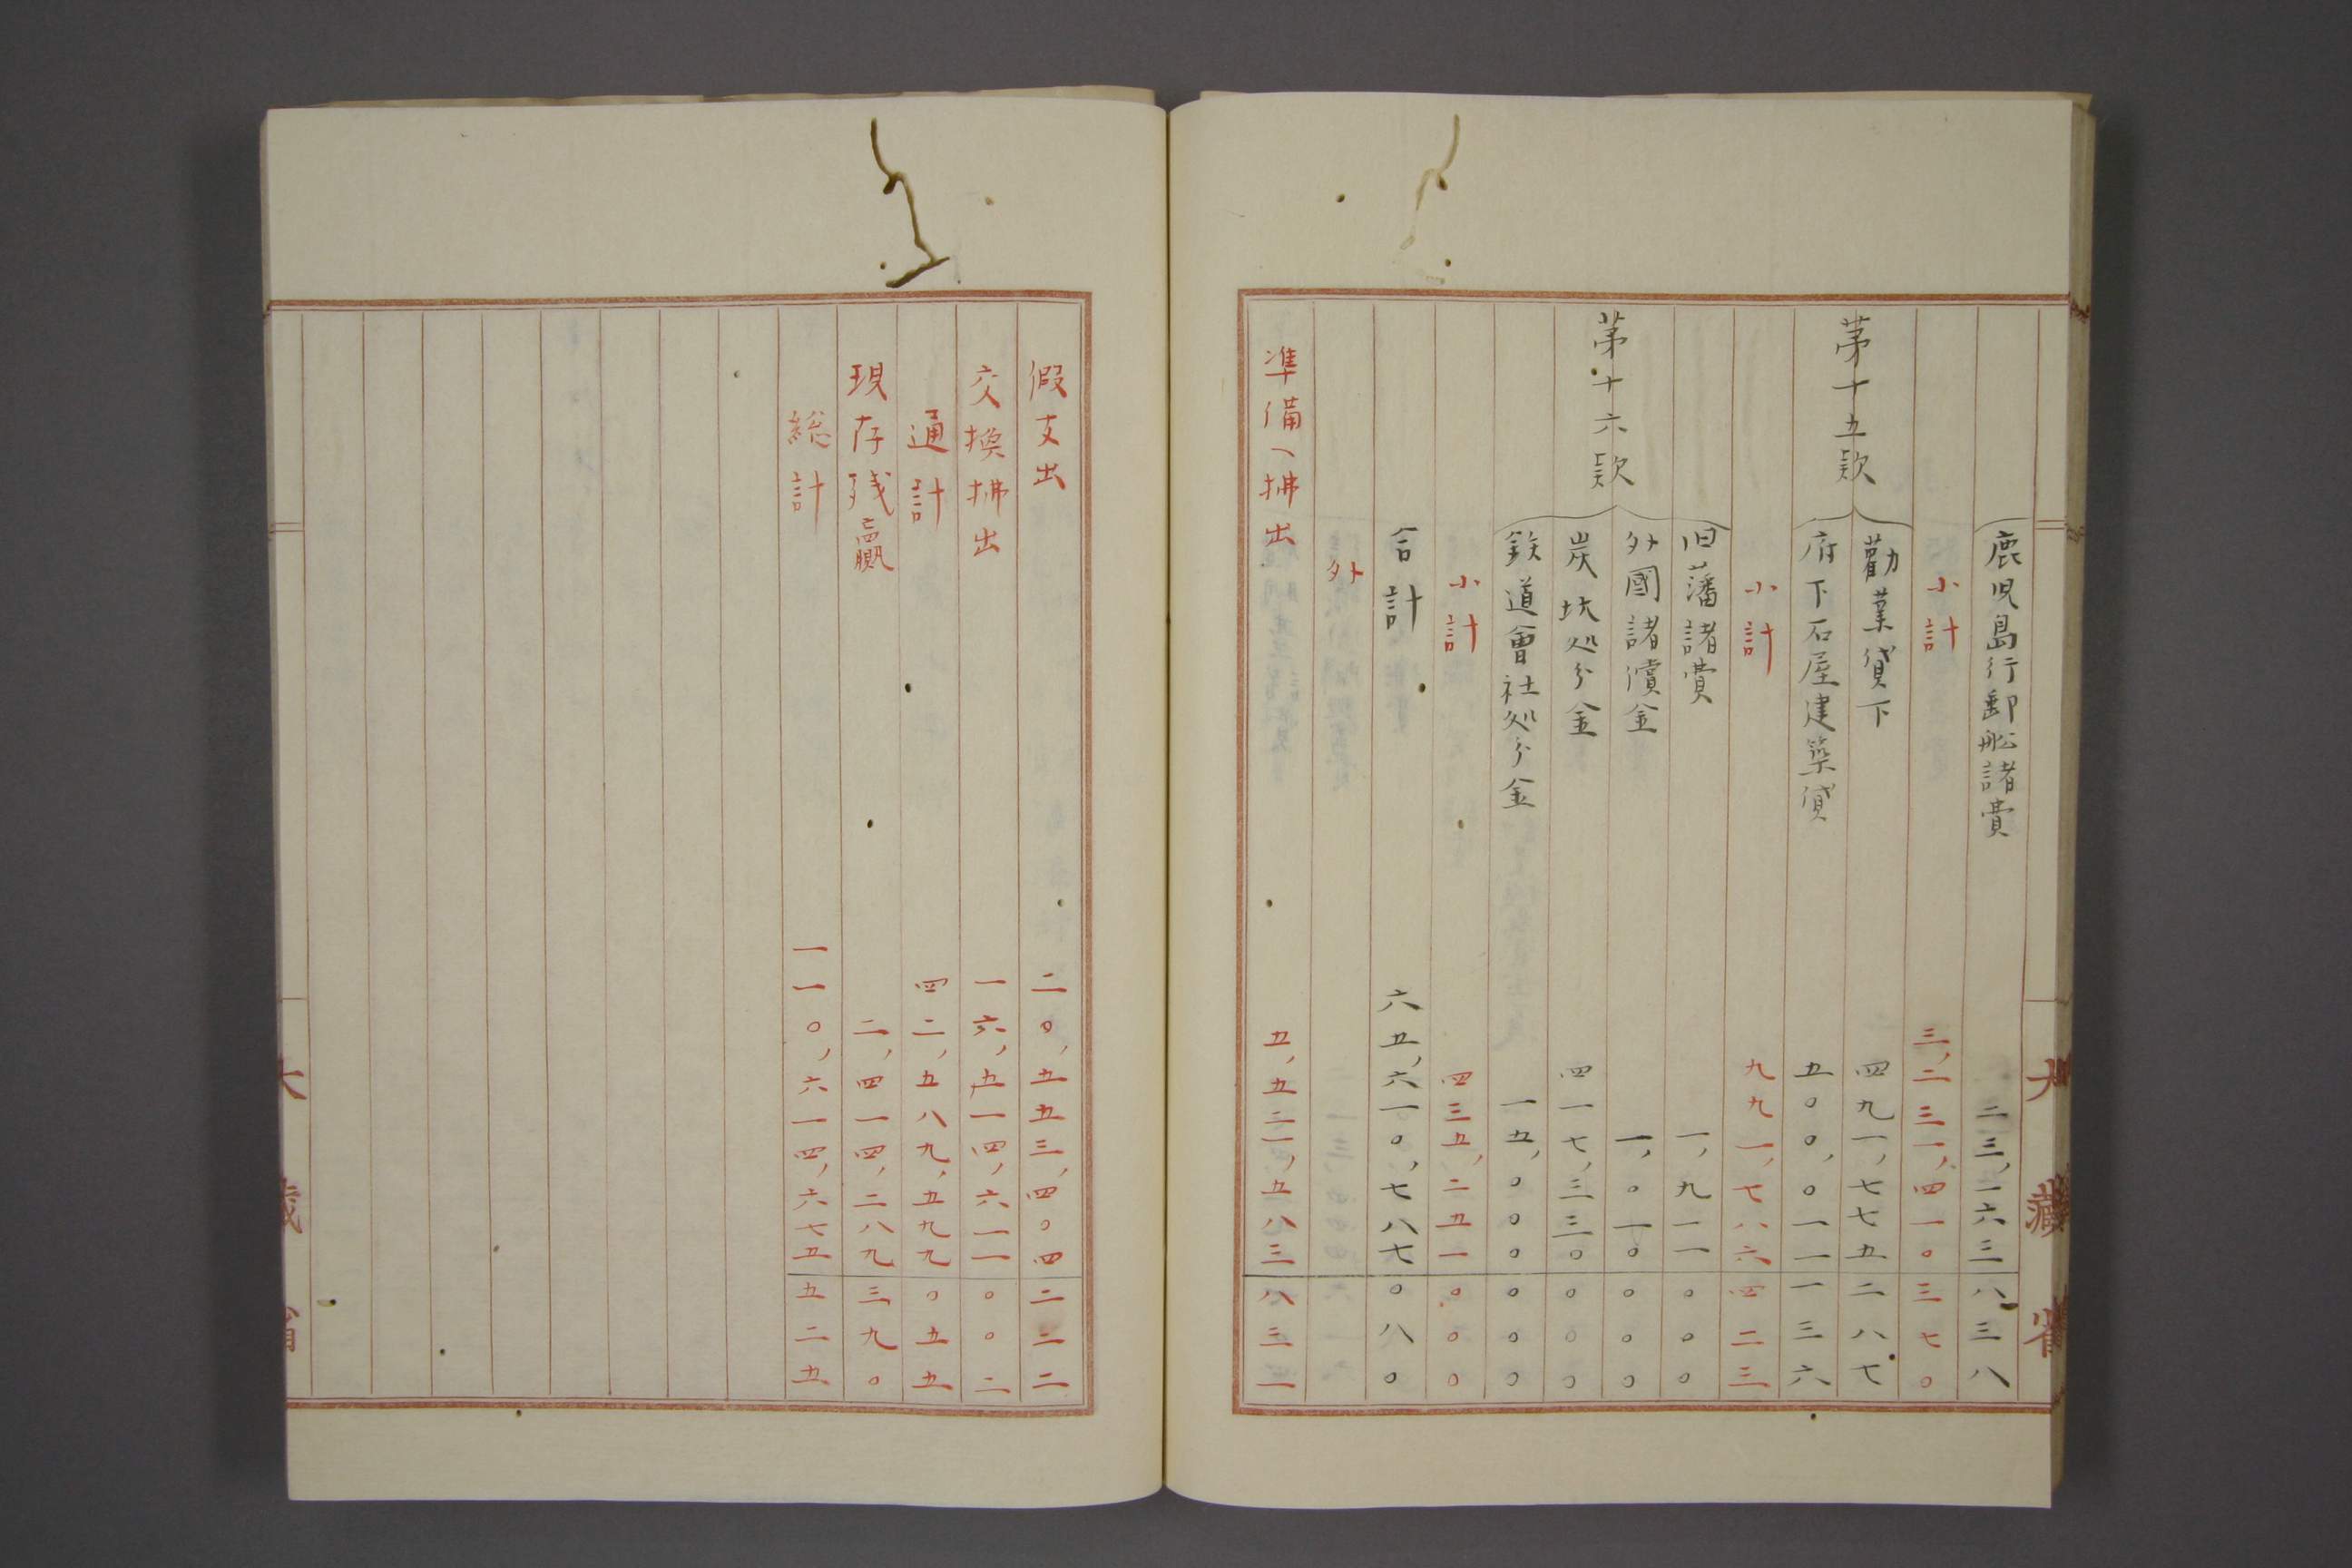 鹿児島行郵舩諸費 二三,一六三八三八
小計 三,二三一,四一〇三七〇
第十五款
勸業貸下 四九一,七七五二八七
府下石屋建築貸 五〇〇,〇一一一三六
小計 九九一,七八六四二三
第十六款
旧藩諸費 一,九一一〇〇〇
外國諸償金 一,〇一〇〇〇〇
炭坑処分金 四一七,三三〇〇〇〇
鉄道會社処分金 一五,〇〇〇〇〇〇
小計 四三五,二五一〇〇〇
合計 六五,六一〇,七八七〇八〇
外
準備へ拂出 五,五二一,五八三八三一
大藏省
假支出 二〇,五五三,四〇四二二二
交換拂出 一六,五一四,六一一〇〇二
通計 四二,五八九,五九九〇五五
現存残贏 二,四一四,二八九三九〇
総計 一一〇,六一四,六七五五二五
大藏省